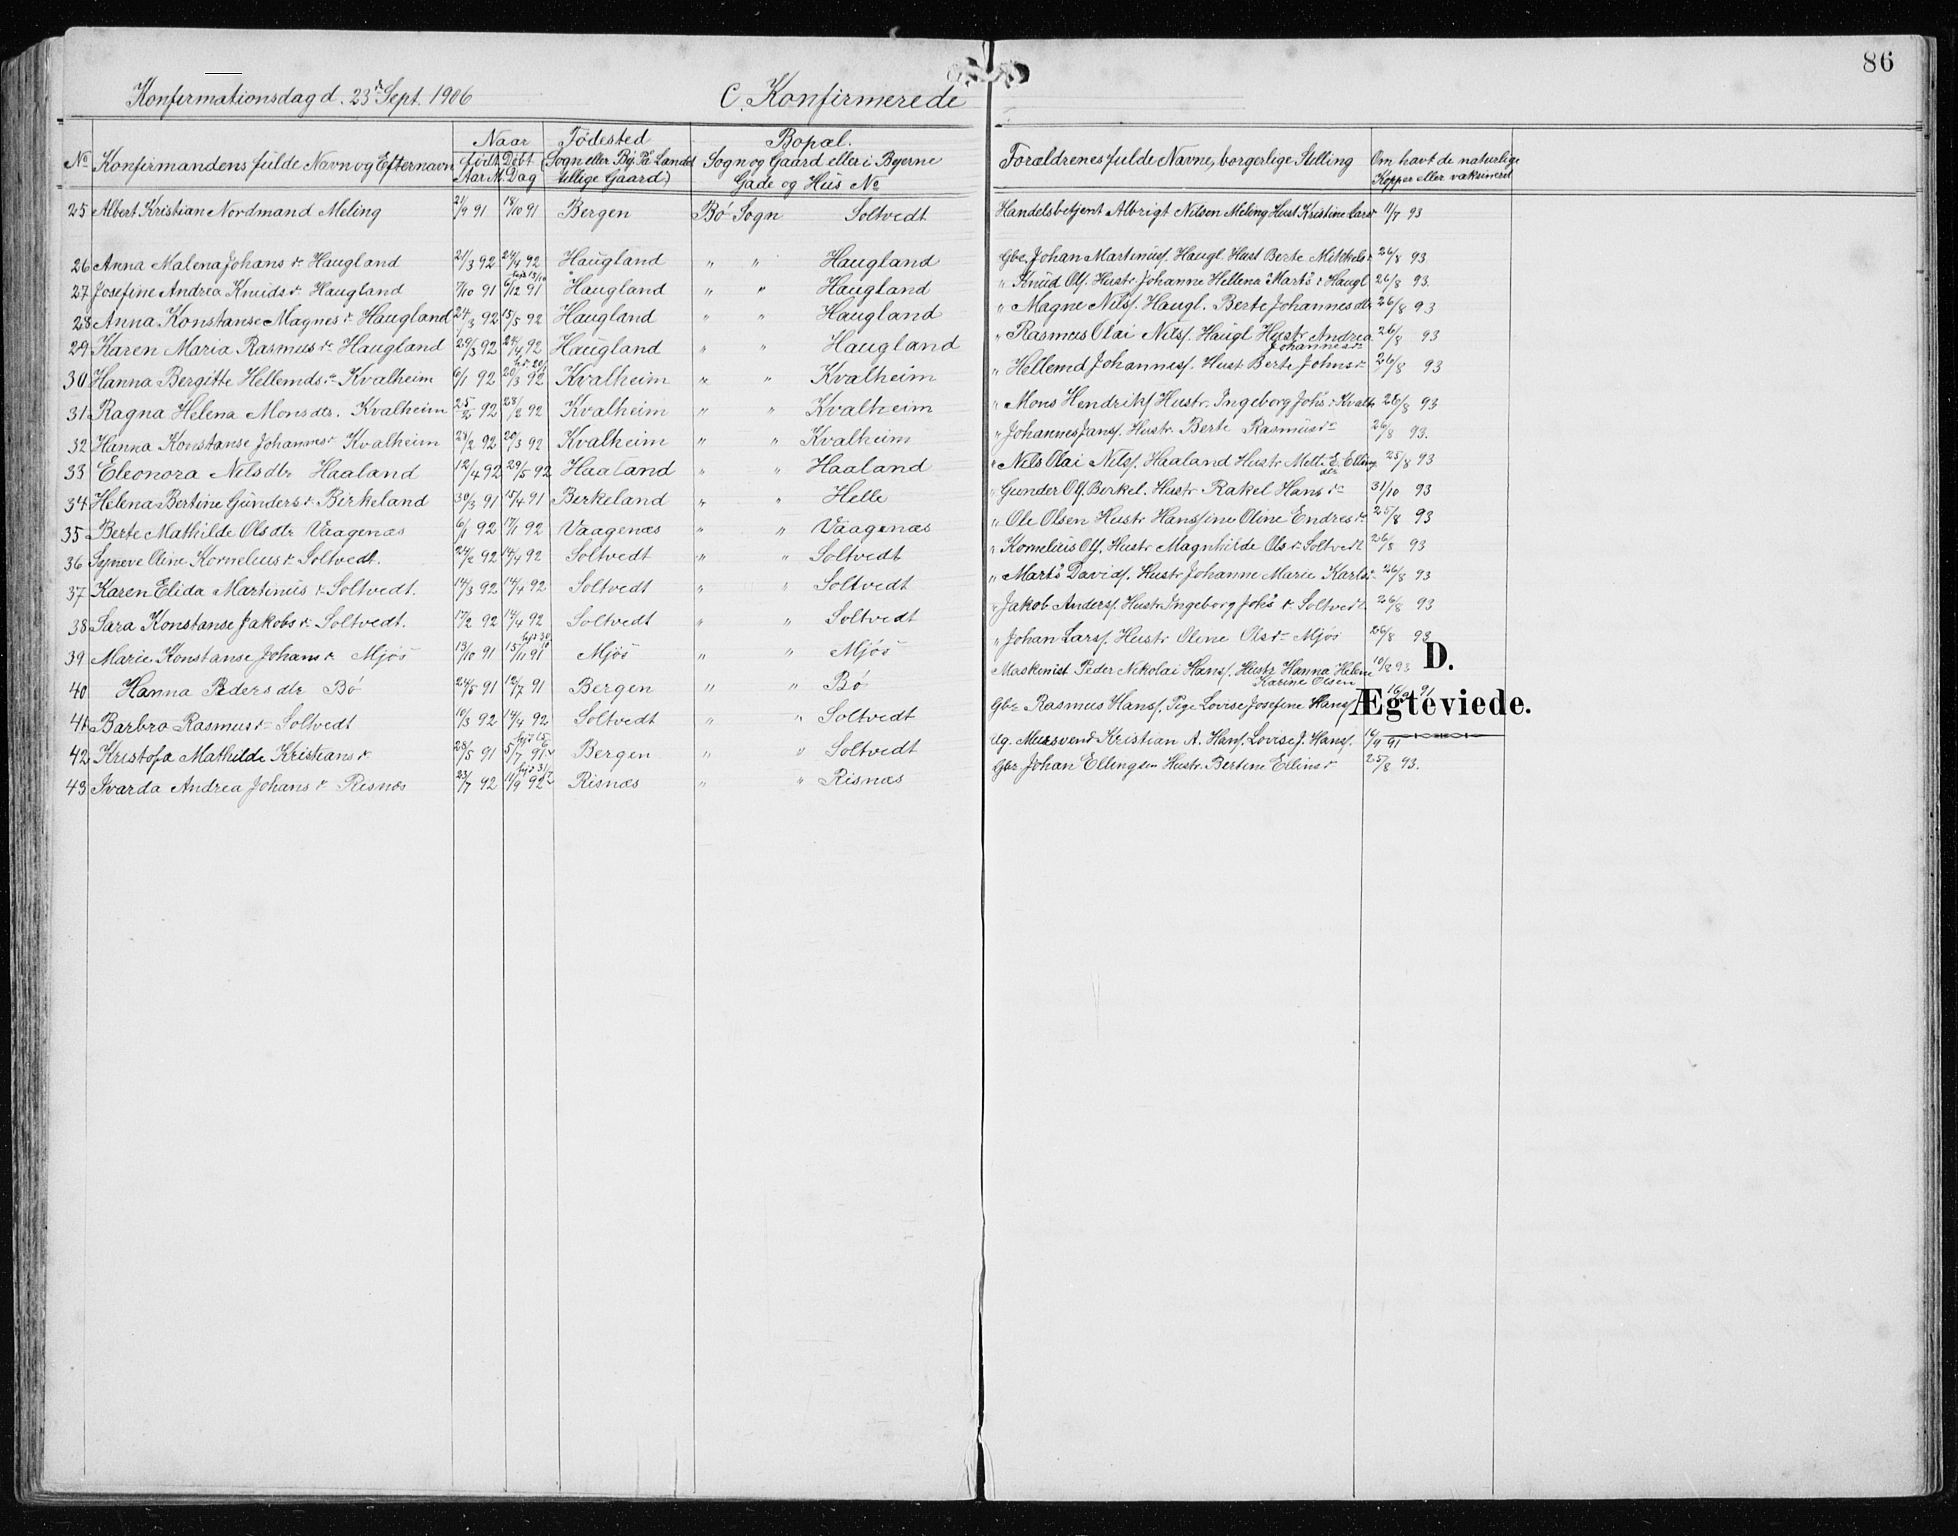 86
Konfirmationsdag d. 23de Sept. 1906 C. Konfirmerede
No Konfirmandens fulde Navn og Efternavn Naar født Aar M. Døbt Dag Fødested (Sogn eller By. På Landet tillige Gaard) Bopæl. Sogn og Gaard eller i Byerne Gade og Hus No Forældrenes fulde Navne, borgerlige Stilling Om havt de naturlige Kopper eller vaksineret
25 Albert Kristian Nordmand Meling 2/9 91 18/10 91 Bergen Bö Sogn Soltvedt Handelsbetjent Albrigt Nilsen Meling Hust Kristine Larsdr 11/7 93
26 Anna Malena Johans dr Haugland 21/3 92 24/4 92 Haugland " " Haugland Gbr. Johan Martinus. Haugl. Hust Berte Mikkelsdr 26/8 93
27 Josefine Andrea Knudsdr Haugland 7/10 91 6/12 91 Haugland " " Haugland " Knud Ols. Hustr Johanne Hellena Marts dr Haugl 26/8 93.
28 Anna Konstanse Magnesdr Haugland 24/3 92 15/5 92 Haugland " " Haugland " Magne Nils. Haugl. Berte Johannesdtr 26/8 93
29 Karen Maria Rasmusdr Haugland 29/3 92 24/4 92 Haugland " " Haugland " Rasmus Olai Nils. Haugl Hustr Andrea Johannesdr 26/8 93
30 Hanna Bergitte Hellemdsdr Kvalheim 6/1 92 20/3 92 Kvalheim " " Kvalheim " Hellemd Johannes. Hust Berte Johnsdr 26/8 93
31 Ragna Helena Monsdtr. Kvalheim 92 28/2 92 Kvalheim " " Kvalheim " Mons Hendriks Hustr. Ingeborg Johs dr Kvalh 26/8 93
32 Hanna Konstanse Johannesdr Kvalheim 92 20/3 92 Kvalheim " " Kvalheim " Johannes Jans. Hustr. Berte Rasmusdr 26/8 93.
33 Eleonora Nelsdtr Haaland 12/4 92 29/5 92 Haaland " " Haaland " Nels Olai Nels. Haaland Hustr Mette E. Ellingdtr 25/8 93
34 Helena Bertine Gundersdr Birkeland 30/3 91 15/4 91 Birkeland " " Helle " Gunder Ols. Birkel. Hustr Rakel Hansdr 31/10 93
35 Berte Mathilde Olsdtr Vaagenæs 6/1 92 17/1 92 Vaagenæs " " Vaagenæs " Ole Olsen Hustr Hansine Oline Endresdr 25/8 93
36 Synneve Oline Korneliusdr Soltvedt. 24/2 92 14/4 92 Soltvedt " " Soltvedt " Kornelius Ols. Hustr Magnhilde Olsdr Soltvedt 26/8 93
37 Karen Elida Martinusdr Soltvedt. 14/3 92 14/4 92 Soltvedt " " Soltvedt " Marts Davids. Hustr Johanne Marie Karlsdr 26/8 93
38 Sara Konstanse Jakobsdr Soltvedt. 17/2 92 14/4 92 Soltvedt " " Soltvedt " Jakob Anders. Hustr Ingeborg Johs dr Soltvedt. 26/8 93
39 Marie Konstanse Johansdr Mjös 13/10 91 15/11 91 Mjös " " Mjös " Johan Lars. Hustr Oline Olsdr Mjös 26/8 93
40 Hanna Pedersdtr Bö 24/5 91 12/7 91 Bergen " " Bö Maskinist Peder Nikolai Hans. Hustr Hanna Helene Karine Olsen 10/8 93
41 Barbra Rasmusdr Soltvedt 10/3 92 14/4 92 Soltvedt " " Soltvedt Gbr Rasmus Hans. Pige Lovise Josefine Hans 91
42 Kristofa Mathilde Kristiansdr 28/5 91 5/7 91 Bergen " Soltvedt Ug. Mursvend Kristian A. Hans. Lovise J. Hans. 91
43 Ivarda Andrea Johansdr Risnæs 23/7 92 11/9 92 Risnæs " " Risnæs Gbr Johan Ellingsen Hustr. Bertine Ellinsdr 25/8 93.
D.
Ægteviede.